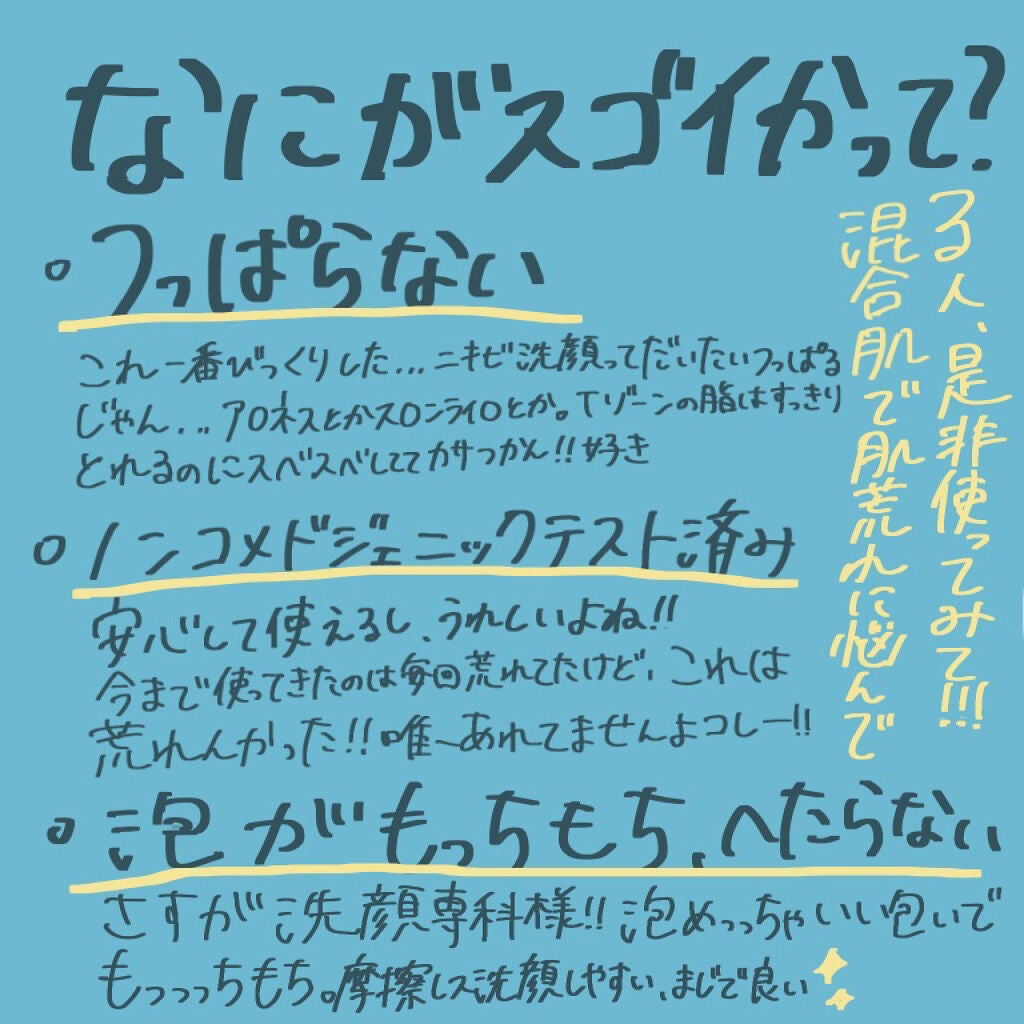 なにがスゴイかって?
・つっぱらない
これ一番びっくりした...ニキビ洗顔ってだいたいつっぱる
じゃん...アロネスとかスロンライロとか。Tゾーンの脂はすっきり
とれるのにスベスベしててカサつかん!!好き
・ノンコメドジェニックテスト済み
安心して使えるし、うれしいよね!!
今まで使ってきたのは毎回荒れてたけど、これは
荒れんかった!!唯一あれてませんよコレー!!
・泡がもっちもち、へたらない
さすが洗顔専科様!!泡めっっちゃいい包いで
もっっっちもち。摩擦レス洗顔しやすい、まじで良い
混合肌で肌荒れに悩んで
る人、是非使ってみて!!!